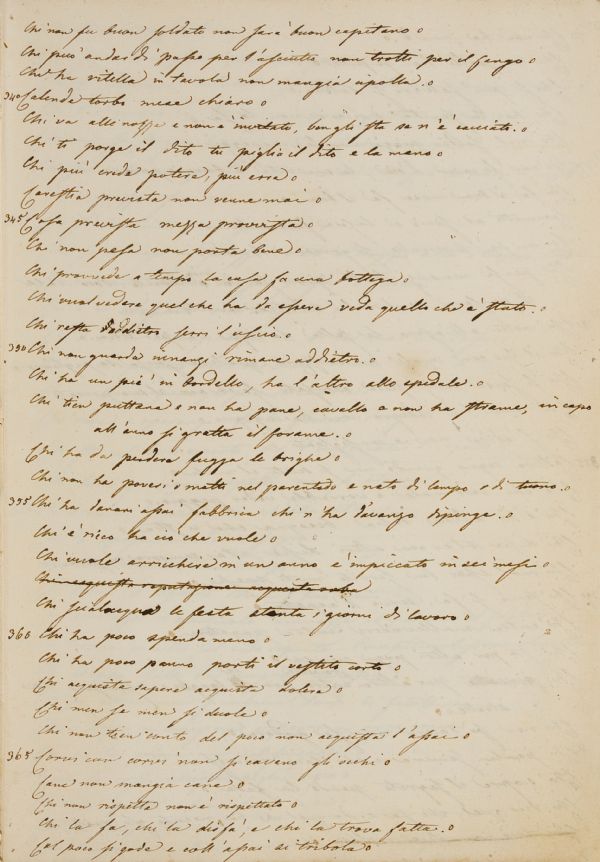 Chi non fu buon soldato non sarà buon capitano
Chi può andar di passo per l'asciutto non trotti per il fango
Chi ha vitella in tavola non mangia cipolla.
340 Calende torbo mese chiaro
Chi va alle nozze e non è invitato, ben gli sta se n'è cacciato.
Chi ti porge il dito tu piglia il dito e la mano
Chi più crede potere, più erra
Carestia prevista non venne mai
345 Cosa prevista mezza provvista
Chi non pesa non porta bene
Chi provvede a tempo la casa fa una bottega
Chi vuol vedere quel che ha da essere veda quello che è stato.
Chi resta daddietro serri l'uscio.
350 Chi non guarda innanzi rimane addietro.
Chi ha un piè in bordello, ha l'altro allo spedale.
Chi tien puttana e non ha pane, cavallo e non ha strame, in capo
all'anno si gratta il forame.
Chi ha da perdere fugga le brighe
Chi non ha poveri o matti nel parentado e nato di lampo o di tuono.
355 Chi ha danari assai fabbrica chi n'ha d'avanzo dipinge.
Chi è ricco ha ciò che vuole
Chi vuole arricchire in un anno è impiccato in sei mesi
Chi acquista reputazione acquista roba
Chi scialacqua le festa stenta i giorni di lavoro
360 Chi ha poco spenda meno
Chi ha poco panno porti il vestito corto
Chi acquista sapere acquista dolere
Chi men sa men si duole
Chi non tien conto del poco non acquista l'assai
365 Corvi con corvi non si cavano gli occhi
Cane non mangia cane
Chi non rispetta non è rispettato
Chi la fa, chi la disfà, e chi la trova fatta.
Col poco si gode e coll'assai si tribola